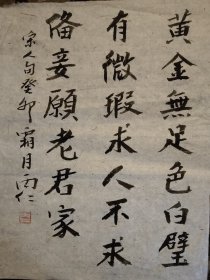 黄金無足色白璧
有微瑕求人不求
俻妾願老君家
宋人句癸卯霜月丙仁